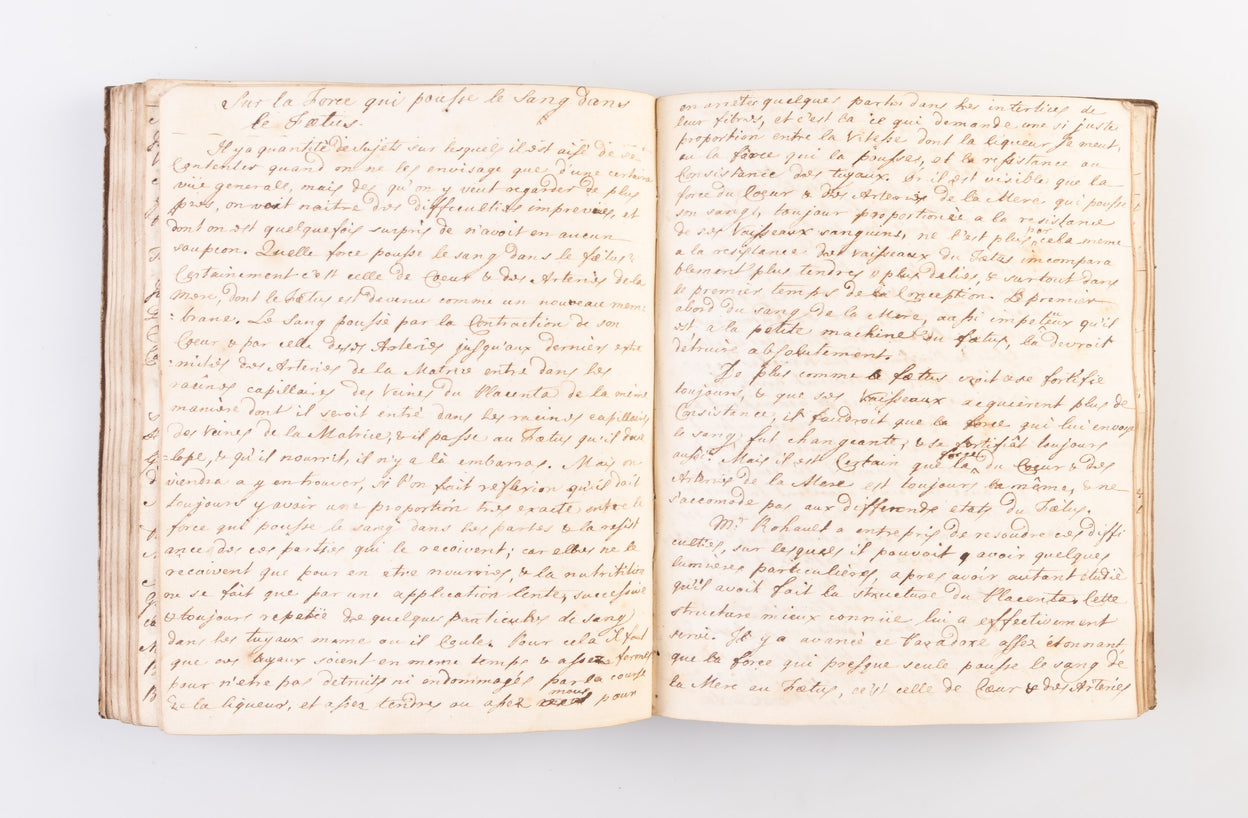 Sur la Force qui pousse le Sang dans
le Fœtus.
Il y a quantité de sujets sur lesquels il est aisé de se
Contenter quand on ne les envisage que d'une certaine
vüe generale, mais des qu'on y veut regarder de plus
près, on voit naitre des difficultiés imprevües, et
dont on est quelquefois surpris de n'avoit en aucun
soupçon. Quelle force pousse le sang dans le fætus?
Certainement c'est celle de Coeur & des Arteries de la
Mere, dont le Fœtus est devenu comme un nouveau mem
:brane. Le sang poussé par la Contraction de son
Cœur & par celle des Arteries jusqu'aux derniers extre
:mités des Arteries de la Matrice entre dans les
racines capillaires des Veines du Placenta de la même
manière dont il seroit entré dans les racines capillaires
des Veines de la Matrice, & il passe au Fœtus qu'il deve
:lope, & qu'il nourrit, il n'y a là embarras. Mais on
viendra a y en trouver, si l'on fait reflexion qu'il doit
toujours y avoir une proportion tres exacte entre la
force que pousse le sang dans les parties & la resist
ance des ces parties qui le recoivent; car elles ne le
recoivent que pour en etre nourries, & la nutritition
ne se fait que par une application lente, successive
& toujours repetée de quelques particules de sang
dans les tuyaux meme ou il Coule. Pour cela il faut
que ces tuyaux soient en meme temps & assez fermes
pour n'etre pas detruits ni endommagés par la course
de la liqueur, et assez tendres au assez mous pour
on arretes quelques partes dans les intertices de
leur fibres, et c'est la ce qui demande une si juste
proportion entre la Vitesse dont la liqueur se meut,
ou la force qui la pousses, et la resistance au
Consistance des tuyaux. Or il est visible que la
force du Coeur & des Arteries de la Mere qui pousse
son sang, toujour proportionée a la resistance
de ses Vaisseaux sanguins, ne l'est plus par cela meme
a la resistance des Vaisseaux du Fœtus incompara
blement plus tendres & plus deliés, & surtout dans
le premier temps de la Conception. Le premier
abord du sang de la Mere, aussi impetüeux qu'il
est a la petite machine du fætus, la devroit
détruire absolutement.
De plus comme le fœtus croit & se fortifie
toujours, & que ses Vaisseaux acquièrent plus de
Consistance, il faudroit que la force qui lui envoye
le sang, fut changeante, & se fortifiât toujours
aussi. Mais il est Certain que la force du Cœur & des
Arteries de la Mere est toujours la même, & ne
s'accomode pas aux differends etats du Fœtus.
Mr. Rohault a entrepris de resoudre ces diffi
culties, sur lesquels il pouvoit avoir quelques
lumieres particulières, apres avoir autant etudié
qu'il avoit fait la structure du Placenta. Cette
structure mieux connüe lui a effectivement
servi. Il y a avancé ce Paradoxe assez etonnant
que la force qui presque seule pousse le sang de
la Mere au Fœtus, c'est celle de Cœur & des Arteries